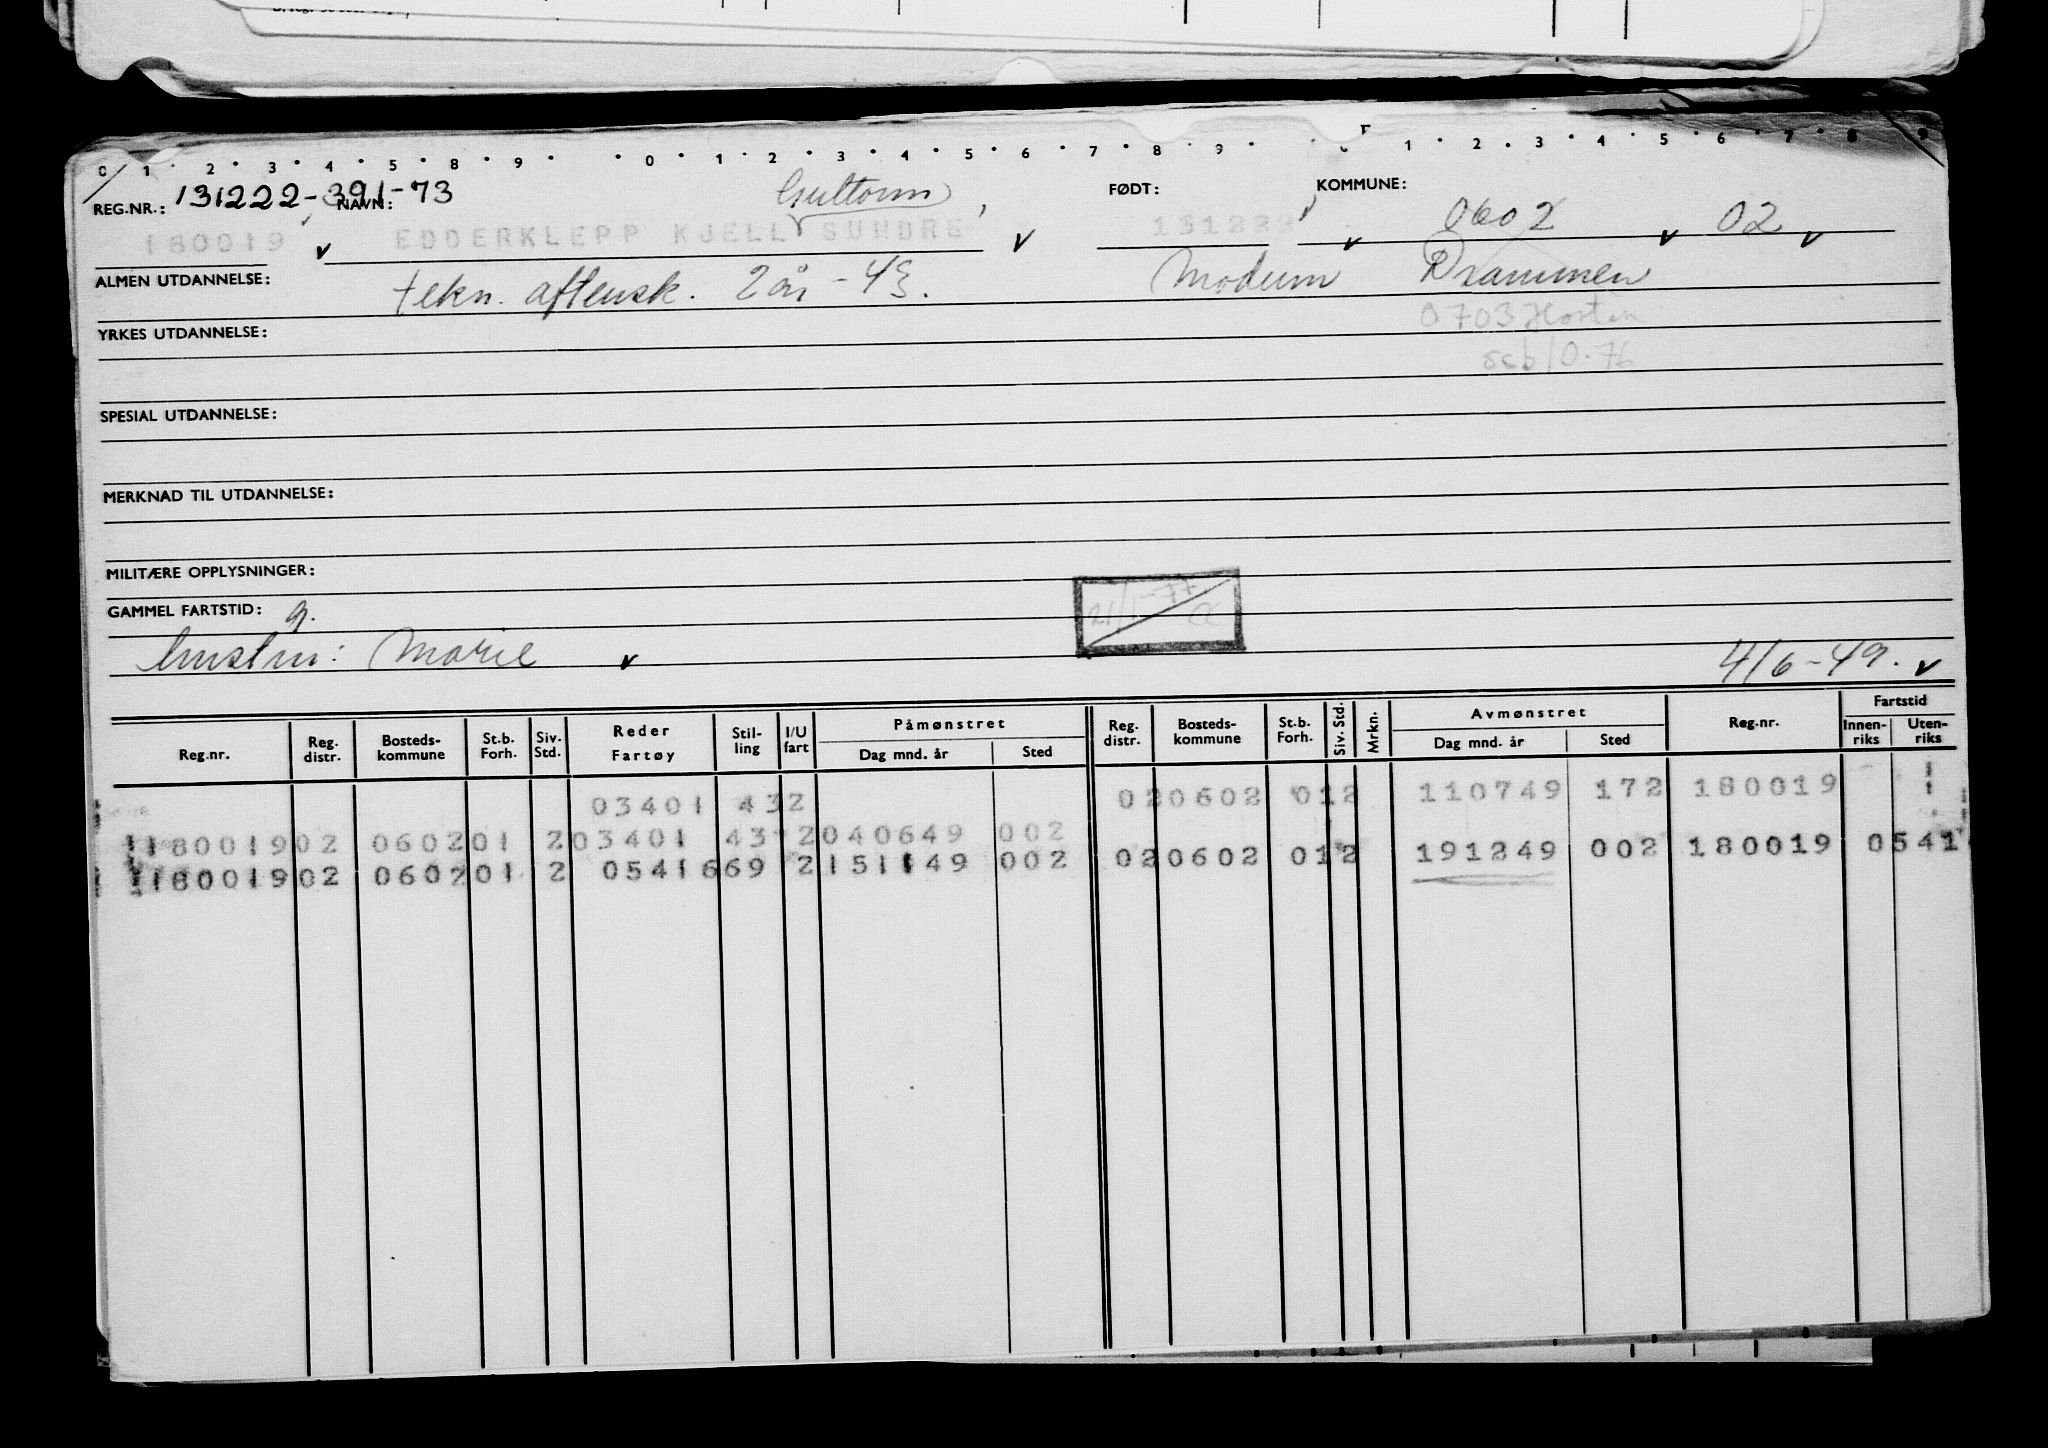 0 1 2 3 4 5 6 7 8 9 0 1 2 3 4 5 6 7 8 9 1 2 3 4 5 6 7 8 9
REG.NR.: 131222-391-73 NAVN: Guttorm FØDT: KOMMUNE:
180019 EDDERKLEPP KJELL SUNDRE 131222 0602 02
ALMEN UTDANNELSE: tekn. aftensk. 2 år - 43. Modum Drammen
YRKES UTDANNELSE: 0703 Horten
scb 10.76
SPESIAL UTDANNELSE:
MERKNAD TIL UTDANNELSE:
MILITÆRE OPPLYSNINGER:
GAMMEL FARTSTID: 9.
21/1-77
hustru: Marie 4/6-49.
Reg.nr. Reg. distr. Bosteds-kommune St.b. Forh. Siv. Std. Reder Fartøy Stil-ling I/U fart Påmønstret Dag mnd. år Sted Reg. distr. Bosteds-kommune St.b. Forh. Siv. Std. Mrkn. Avmønstret Dag mnd. år Sted Reg.nr. Fartstid Innen-riks Uten-riks
03401 432 020602 012 110749 172 180019
118001902 060201 203401 43 2040649 002
118001902 060201 2 0541669 2151149 002 020602 012 191249 002 180019 0541